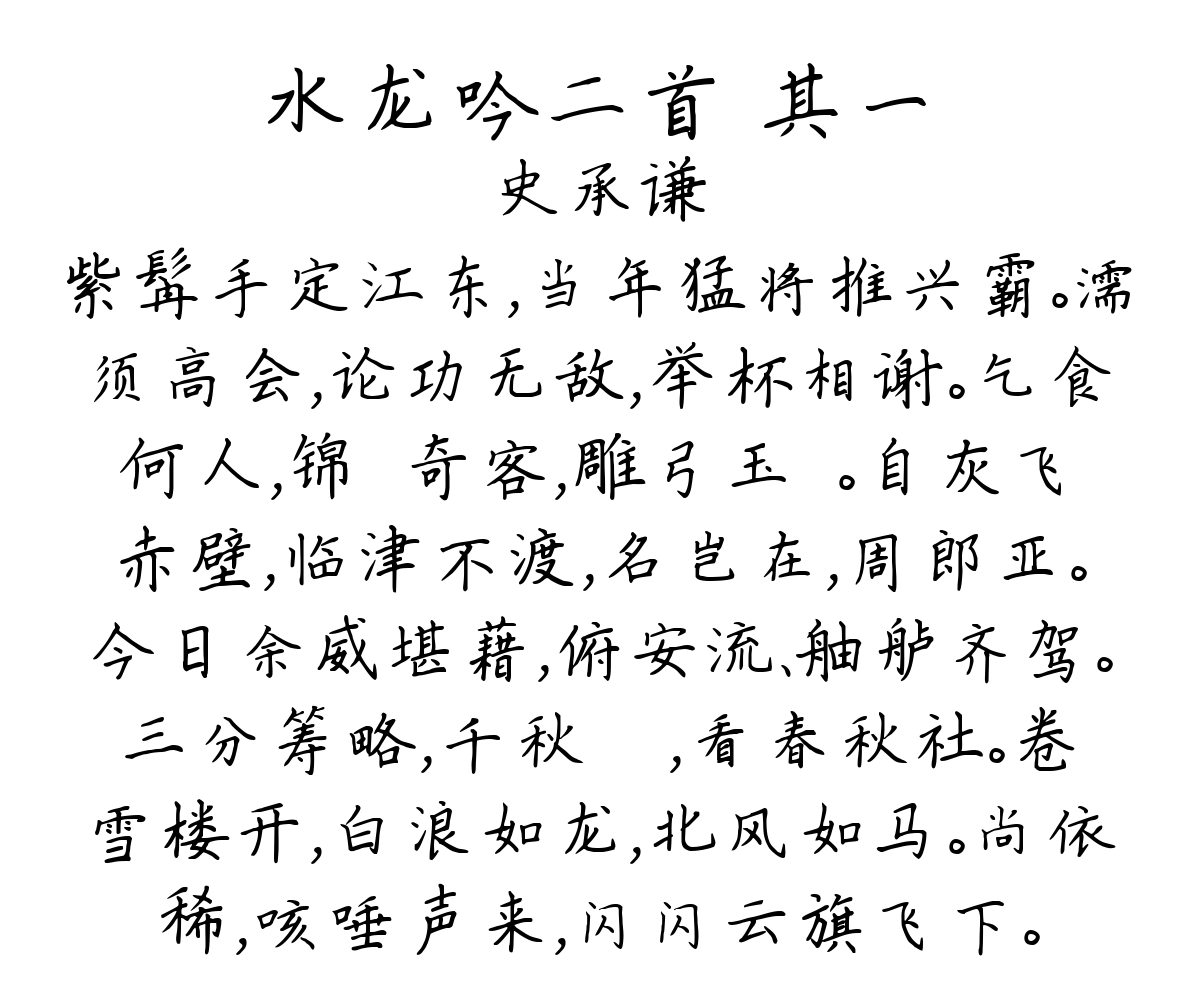 水龙吟二首 其一
史承谦
紫髯手定江东,当年猛将推兴霸。濡
须高会,论功无敌,举杯相谢。乞食
何人,锦 奇客,雕弓玉 。自灰飞
赤壁,临津不渡,名岂在,周郎亚。
今日余威堪藉,俯安流、舳舻齐驾。
三分筹略,千秋 ,看春秋社。卷
雪楼开,白浪如龙,北风如马。尚依
稀,咳唾声来,闪闪云旗飞下。